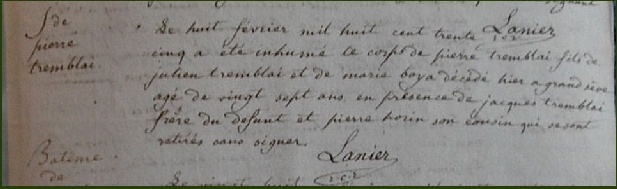 S de
pierre
tremblai.
Lanier
Le huit février mil huit cent trente
cinq a été inhumé le corps de pierre tremblai fils de
julien tremblai et de marie boya décédé hier a grand sève
agé de vingt sept ans en présence de jacques tremblai
frère du defunt et pierre horin son cousin qui se sont
retirés sans signer.
Lanier
Batême
de
huit